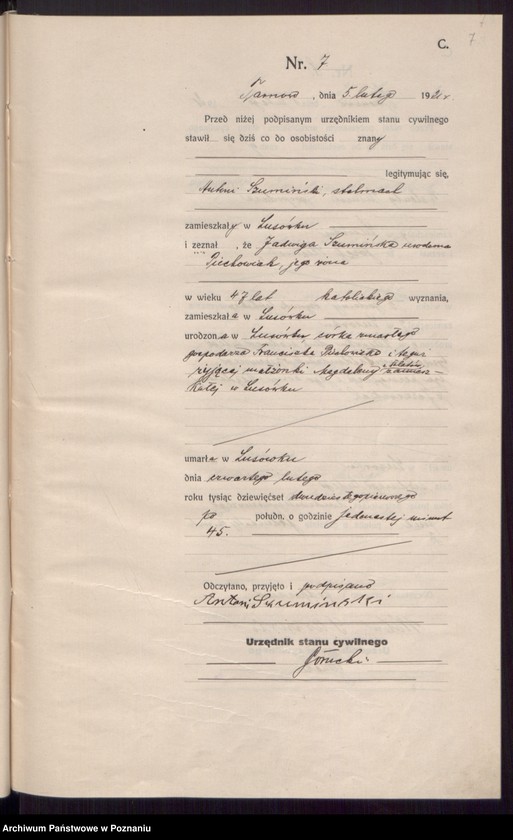 7
C.
Nr. 7
, dnia 5 lutego 1921 r.
Przed niżej podpisanym urzędnikiem stanu cywilnego
stawił się dziś co do osobistości znany
legitymując się,
Antoni Szumiński, stelmach
zamieszkały w Lusówku
i zeznał , że Jadwiga Szumińska urodzona
Piechowiak, jego żona
w wieku 47 lat katolickiego wyznania,
zamieszkała w Lusówku
urodzona w Lusówku córka zmarłego
gospodarza Franciszka i tegoż
żyjącej małżonki Magdaleny zamiesz-
kałej w Lusówku
umarła w Lusówku
dnia czwartego lutego
roku tysiąc dziewięćset dwudziestegopierwszego
połudn. o godzinie jedenastej minut
45.
Odczytano, przyjęto i podpisano
Antoni Szumiński
Urzędnik stanu cywilnego
Górecki
Archiwum Państwowe w Poznaniu